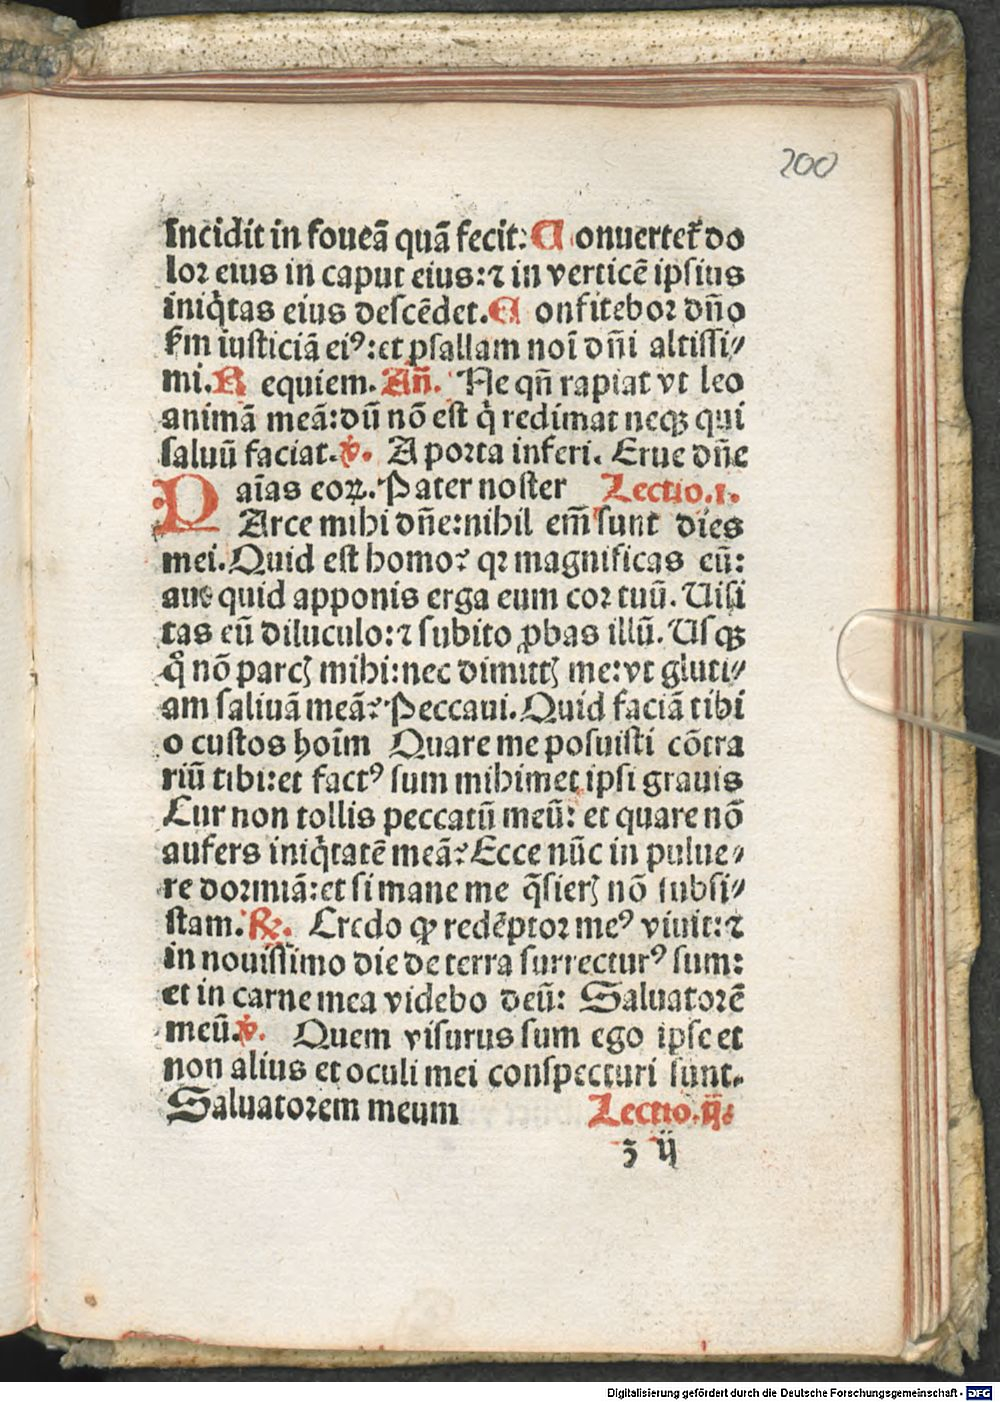 200
Incidit in foueã quã fecit: Conuertet᷑ do
lor eius in caput eius:⁊ in verticẽ ipsius
iniq̃tas eius descẽdet. Confitebor dño
ẜm iusticiã eiꝰ:et psallam noĩ dñi altissi⸗
mi. Requiem. Añ. Ne qñ rapiat vt leo
animã meã:dũ nõ est q̃ redimat neqꝫ qui
saluũ faciat. ℣. A porta inferi. Erue dñe
aĩas eoꝝ. Pater noster Lectio.1.
PArce mihi dñe:nihil em̃ sunt dies
mei. Quid est homo? qꝛ magnificas eũ:
aut quid apponis erga eum cor tuũ. Uisi
tas eũ diluculo:⁊ subito ꝓbas illũ. Usqꝫ
q̊ nõ parcꝭ mihi:nec dimittꝭ me:vt gluti⸗
am saliuã meã? Peccaui. Quid faciã tibi
o custos hoĩm Quare me posuisti cõtra
riũ tibi:et factꝰ sum mihimet ipsi grauis
Cur non tollis peccatũ meũ: et quare nõ
aufers iniq̃tatẽ meã? Ecce nũc in pulue⸗
re dormiã:et si mane me q̃sierꝭ nõ subsi⸗
stam. ℟. Credo ꝙ redẽptor meꝰ viuit:⁊
in nouissimo die de terra surrecturꝰ sum:
et in carne mea videbo deũ: Saluatorẽ
meũ. ℣. Quem visurus sum ego ipse et
non alius et oculi mei conspecturi sunt.
Saluatorem meum Lectio.ij.
ʒ ij
Digitalisierung gefördert durch die Deutsche Forschungsgemeinschaft - DFG